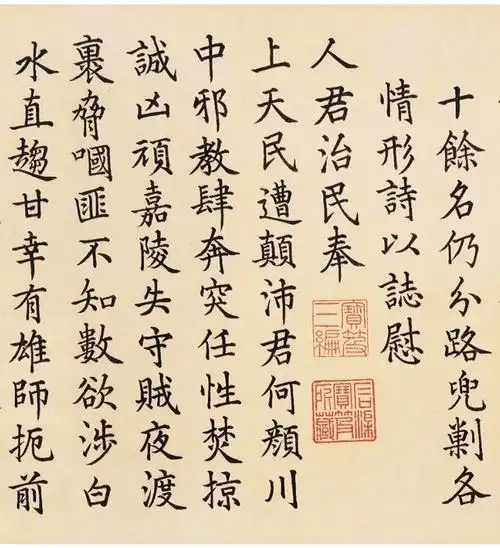 十餘名仍分路兜剿各
情形詩以誌慰
人君治民奉
上天民遭顛沛君何顏川
中邪教肆奔突任性焚掠
誠凶頑嘉陵失守賊夜渡
裹脅嘓匪不知數欲涉白
水直趨甘幸有雄師扼前
寶笈三編
石渠寶笈所藏